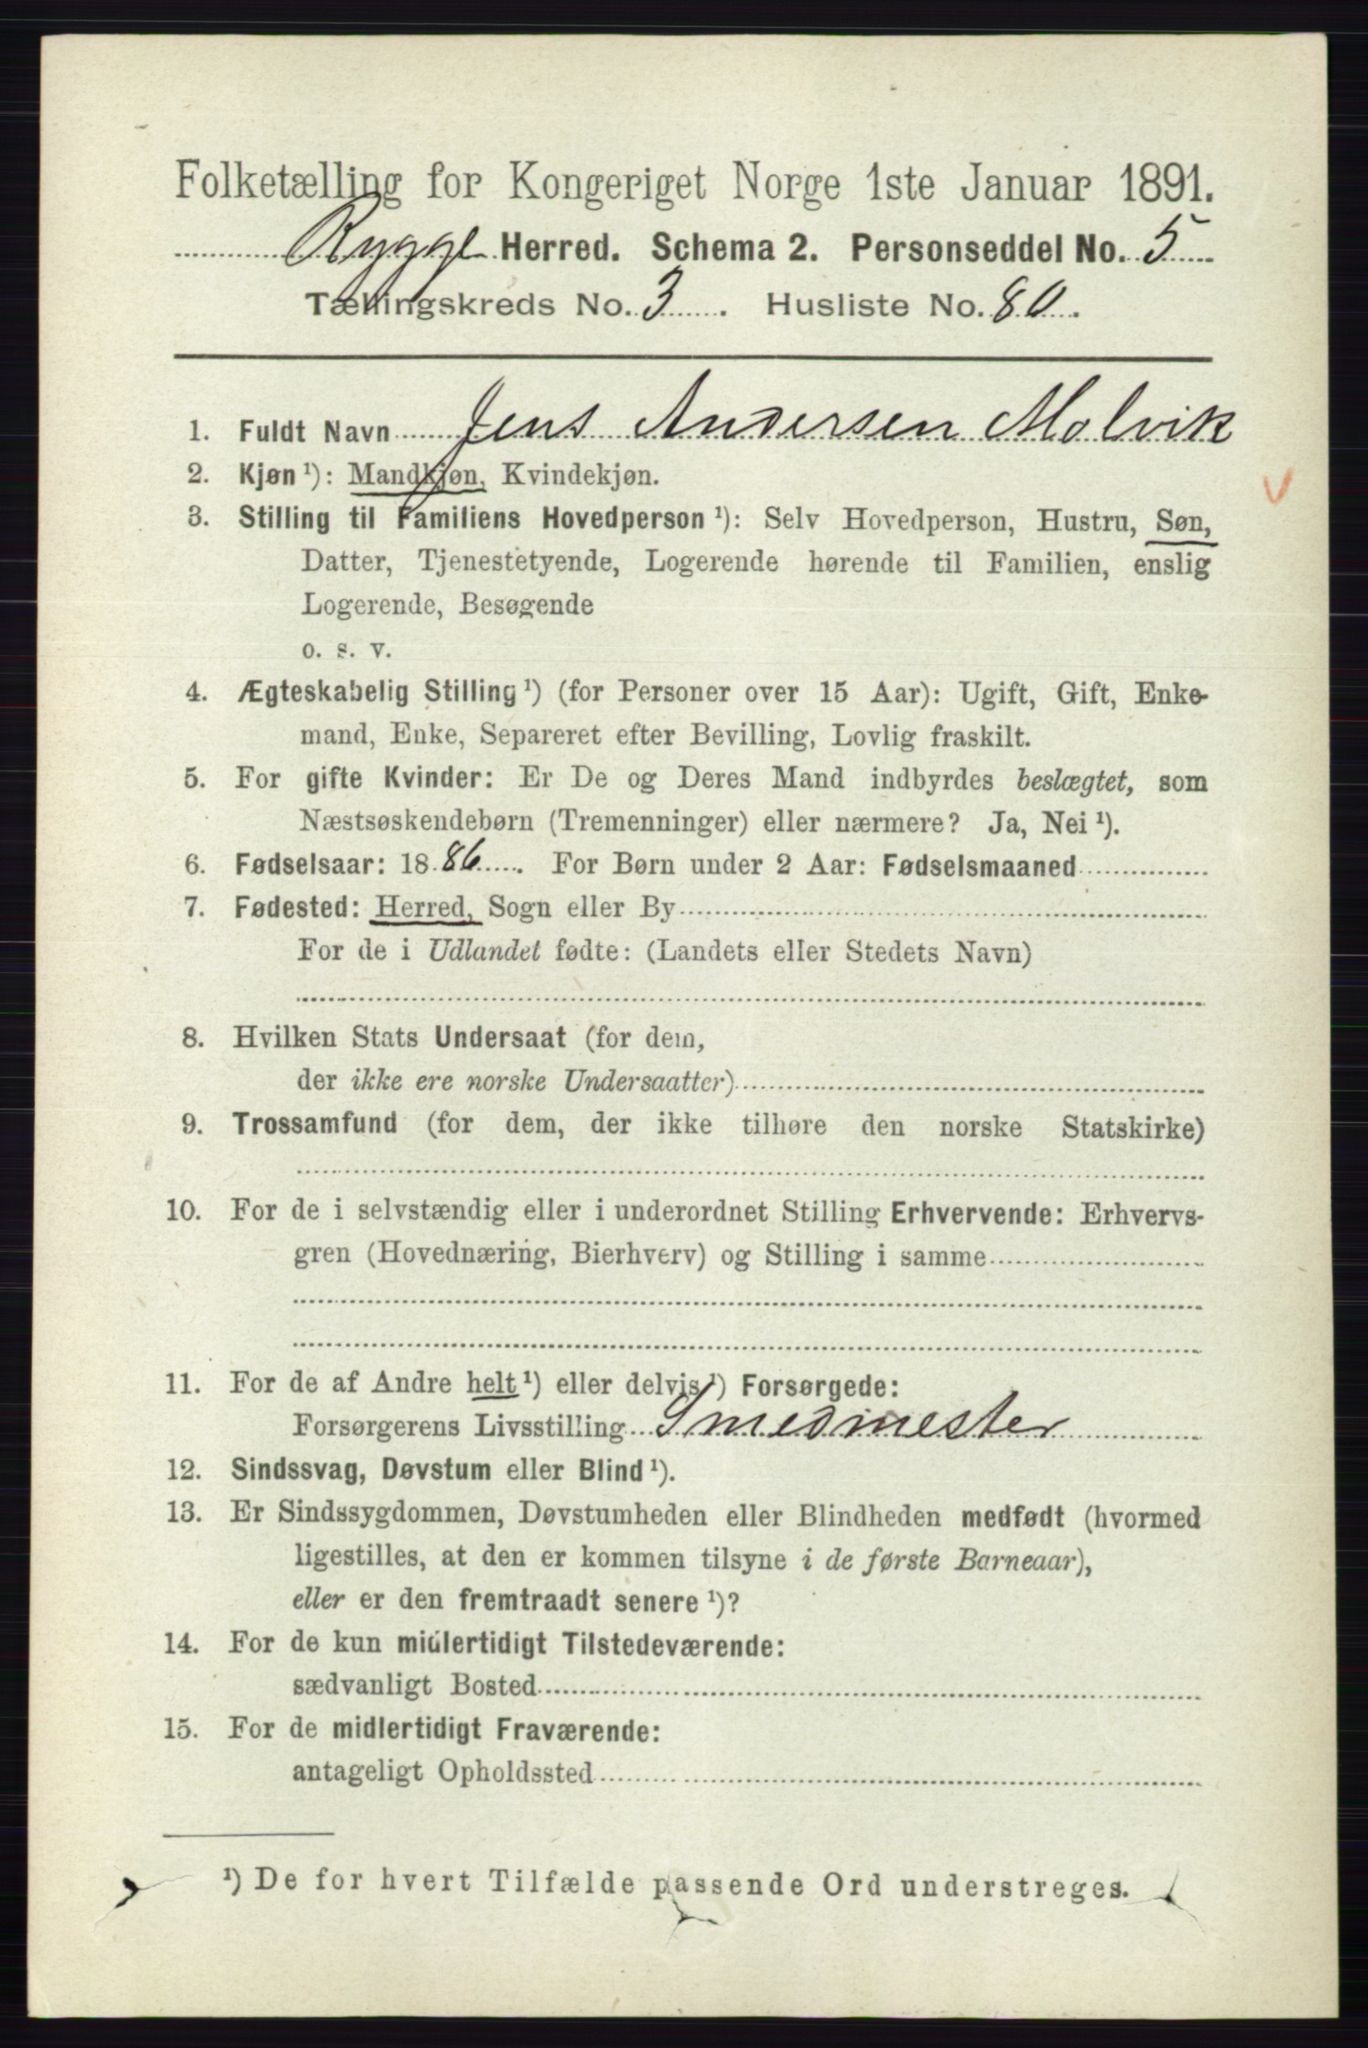 Folketælling for Kongeriget Norge 1ste Januar 1891.
Rygge Herred. Schema 2. Personseddel No. 5
Tællingskreds No. 3. Husliste No. 80.
1. Fuldt Navn Jens Andersen Molvik
2. Kjøn ¹): Mandkjøn, Kvindekjøn.
3. Stilling til Familiens Hovedperson ¹): Selv Hovedperson, Hustru, Søn,
Datter, Tjenestetyende, Logerende hørende til Familien, enslig
Logerende, Besøgende
o. s. v.
4. Ægteskabelig Stilling ¹) (for Personer over 15 Aar): Ugift, Gift, Enke-
mand, Enke, Separeret efter Bevilling, Lovlig fraskilt.
5. For gifte Kvinder: Er De og Deres Mand indbyrdes beslægtet, som
Næstsøskendebørn (Tremenninger) eller nærmere? Ja, Nei ¹).
6. Fødselsaar: 1886. For Børn under 2 Aar: Fødselsmaaned
7. Fødested: Herred, Sogn eller By
For de i Udlandet fødte: (Landets eller Stedets Navn)
8. Hvilken Stats Undersaat (for dem,
der ikke ere norske Undersaatter)
9. Trossamfund (for dem, der ikke tilhøre den norske Statskirke)
10. For de i selvstændig eller i underordnet Stilling Erhvervende: Erhvervs-
gren (Hovednæring, Bierhverv) og Stilling i samme
11. For de af Andre helt ¹) eller delvis ¹) Forsørgede:
Forsørgerens Livsstilling Smedmester
12. Sindssvag, Døvstum eller Blind ¹).
13. Er Sindssygdommen, Døvstumheden eller Blindheden medfødt (hvormed
ligestilles, at den er kommen tilsyne i de første Barneaar),
eller er den fremtraadt senere ¹)?
14. For de kun midlertidigt Tilstedeværende:
sædvanligt Bosted
15. For de midlertidigt Fraværende:
antageligt Opholdssted
¹) De for hvert Tilfælde passende Ord understreges.